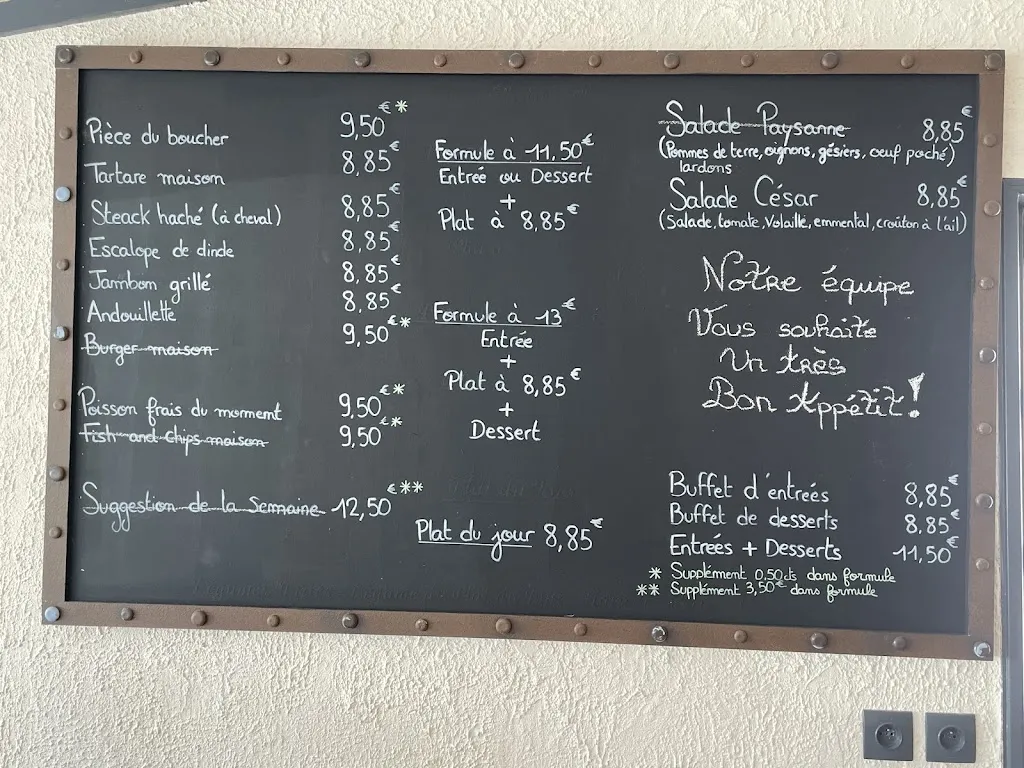 Pièce du boucher 9,50€*
Tartare maison 8,85€
Steack haché (à cheval) 8,85€
Escalope de dinde 8,85€
Jambon grillé 8,85€
Andouillette 8,85€
Burger maison 9,50€*
Poisson frais du moment 9,50€*
Fish and Chips maison 9,50€*
Suggestion de la Semaine 12,50€**
Formule à 11,50€
Entrée ou Dessert
+
Plat à 8,85€
Formule à 13€
Entrée
+
Plat à 8,85€
+
Dessert
Plat du jour 8,85€
Salade Paysanne 8,85€
(Pommes de terre, oignons, gésiers, oeuf poché)
lardons
Salade César 8,85€
(Salade, tomate, Volaille, emmental, croûton à l'ail)
Notre équipe
Vous souhaite
Un très
Bon Appétit!
Buffet d'entrées 8,85€
Buffet de desserts 8,85€
Entrées + Desserts 11,50€
* Supplément 0,50cts dans formule
** Supplément 3,50€ dans formule